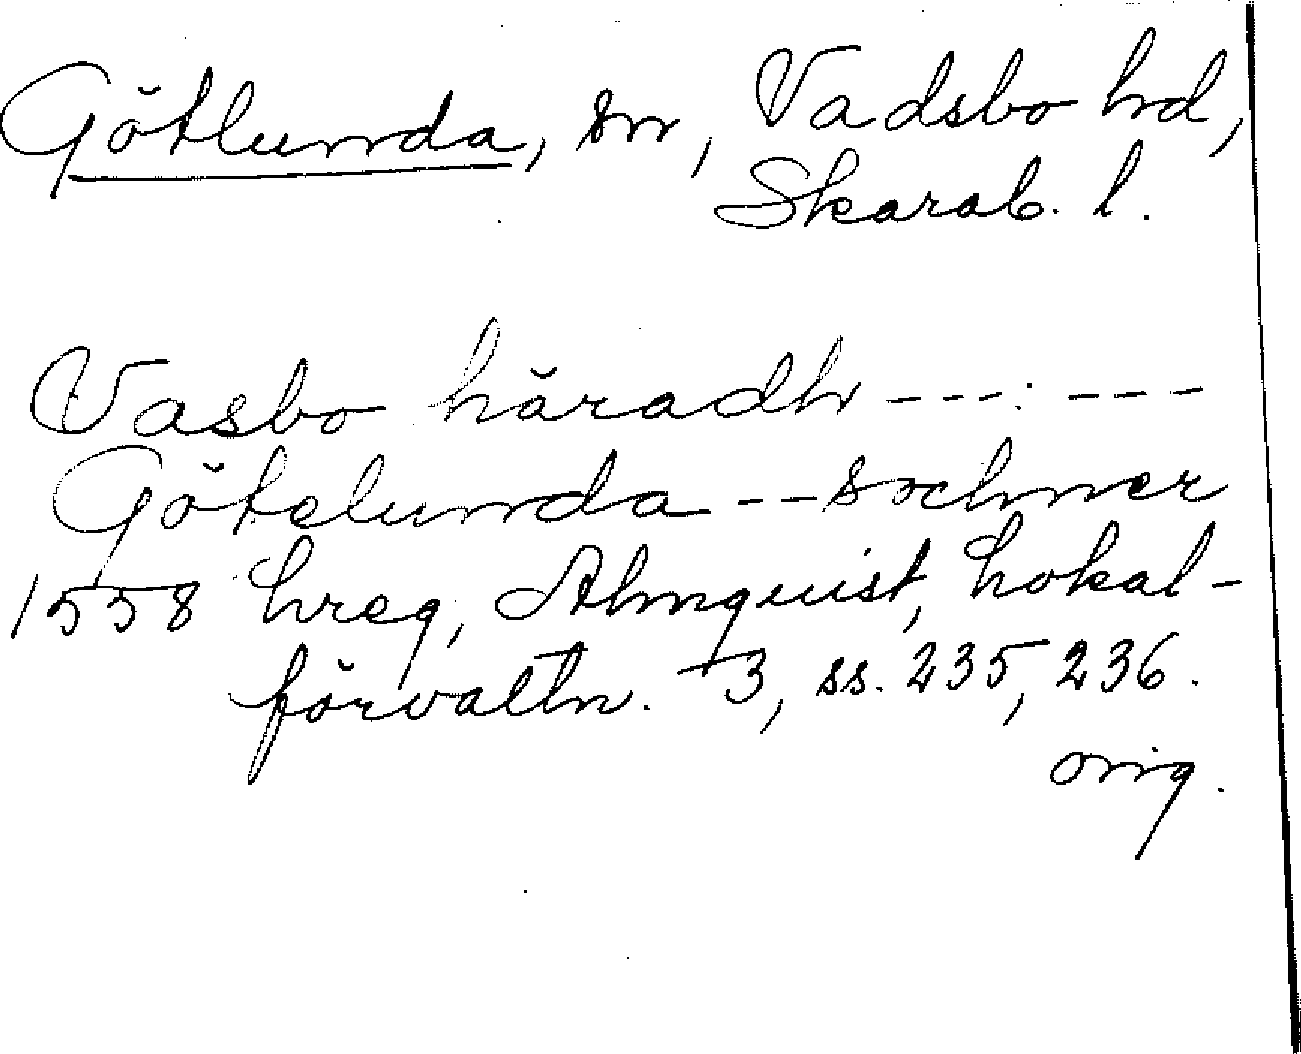 Götlunda, sn, Vadsbo hd,
Skarab. l.
Vasbo häradh --- ---
Götelunda -- sochner
1558 hreg, Almquist, Lokal-
förvaltn. 3, ss. 235, 236.
orig.